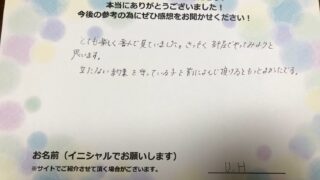 本当にありがとうございました！
今後の参考の為にぜひ感想をお聞かせください！
とても楽しく喜んで見ていました。さっそく 財布でやってみようと
思います。
立たない 約束 を 守っている子 を 前によんで 頂けると もっとよかったです。
お名前（イニシャルでお願いします）
※サイトでご紹介させて頂く場合がございます。
U.H